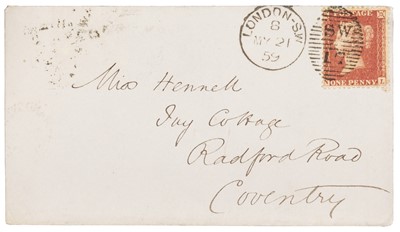 LONDON-S.W
8
MY 21
59
POSTAGE
SW
17
ONE PENNY
Miss Hennell
Ivy Cottage
Radford Road
Coventry